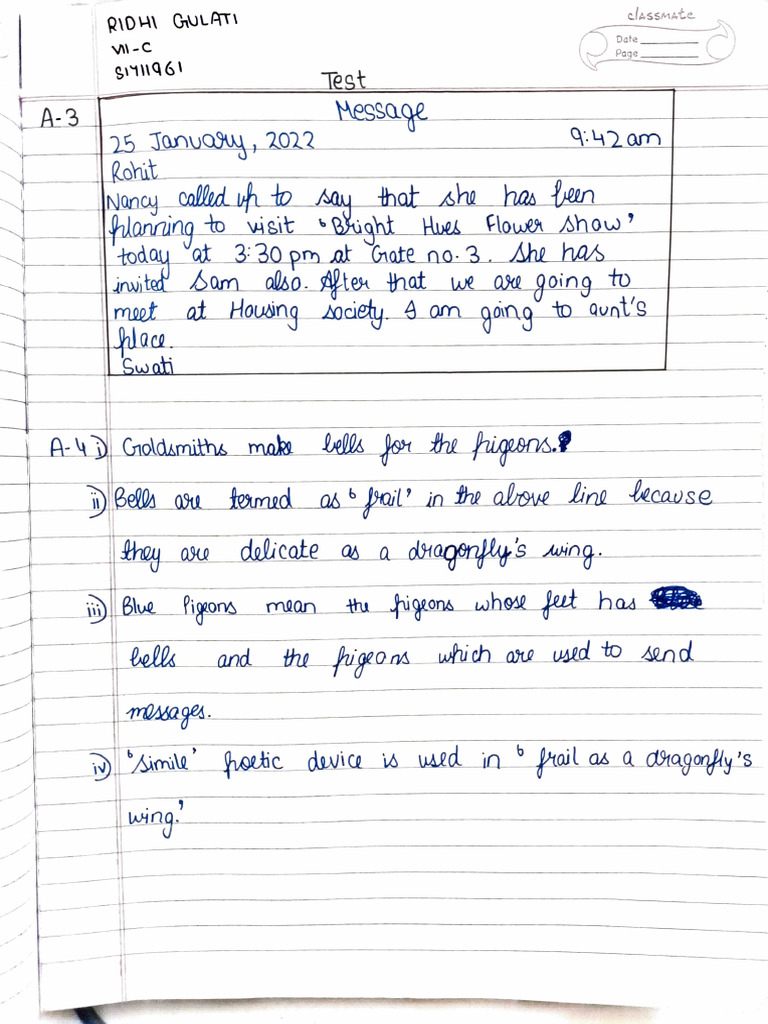 RIDHI GULATI
VII-C
S1711961
classmate
Date
Page
Test
A-3
Message
25 January, 2022 9:42 am
Rohit
Nancy called up to say that she has been
planning to visit 'Bright Hues Flower show'
today at 3:30 pm at Gate no. 3. She has
invited Sam also. After that we are going to
meet at Housing society. I am going to aunt's
place.
Swati
A-4 i) Goldsmiths make bells for the pigeons.
ii) Bells are termed as 'frail' in the above line because
they are delicate as a dragonfly's wing.
iii) Blue Pigeons mean the pigeons whose feet has
bells and the pigeons which are used to send
messages.
iv) 'Simile' poetic device is used in 'frail as a dragonfly's
wing.'